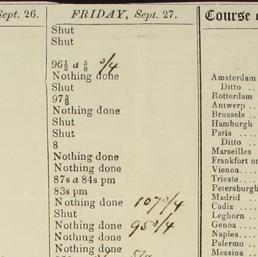 Sept. 26.
FRIDAY, Sept. 27.
Course
Shut
Shut
96½ a ⅝ 3/4
Nothing done
Shut
97⅝
Nothing done
Shut
Shut
8
Nothing done
Nothing done
87s a 84s pm
83s pm
Nothing done 107 3/4
Shut
Nothing done 95 3/4
Nothing done
Nothing done
Amsterdam
Ditto ..
Rotterdam
Antwerp ..
Brussels ..
Hamburgh
Paris ....
Ditto ..
Marseilles
Frankfort on
Vienna....
Trieste....
Petersburgh
Madrid ..
Cadiz ....
Leghorn ..
Genoa ....
Naples....
Palermo ..
Messina ..